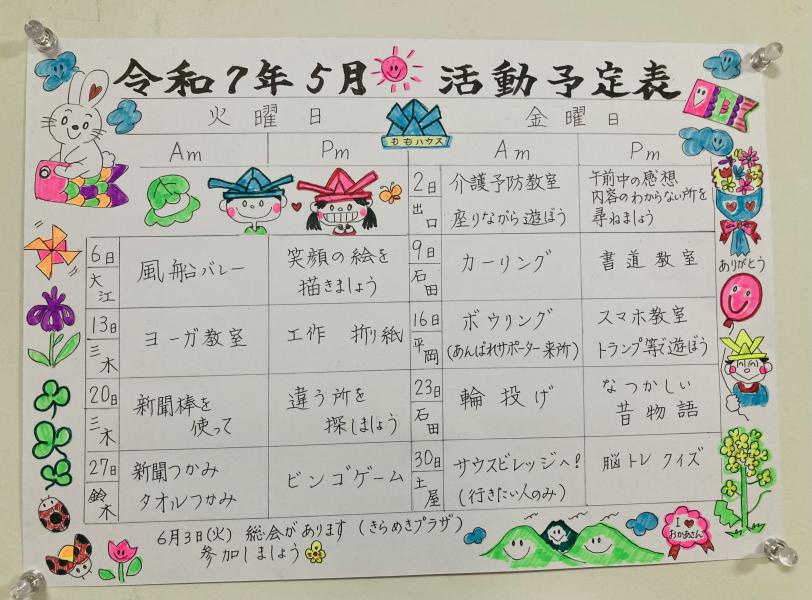 令和7年5月 活動予定表
ももハウス
火曜日
金曜日
Am
Pm
Am
Pm
2日
出口
介護予防教室
座りながら遊ぼう
午前中の感想
内容のわからない所を
尋ねましょう
6日
大江
風船バレー
笑顔の絵を
描きましょう
9日
石田
カーリング
書道教室
13日
三木
ヨーガ教室
工作 折り紙
16日
平岡
ボウリング
(あんぱれサポーター来所)
スマホ教室
トランプ等で遊ぼう
20日
三木
新聞棒を
使って
違う所を
探しましょう
23日
石田
輪投げ
なつかしい
昔物語
27日
鈴木
新聞つかみ
タオルつかみ
ビンゴゲーム
30日
土屋
サウスビレッジへ!
(行きたい人のみ)
脳トレ クイズ
6月3日(火) 総会があります (きらめきプラザ)
参加しましょう
ありがとう
I
おかあさん